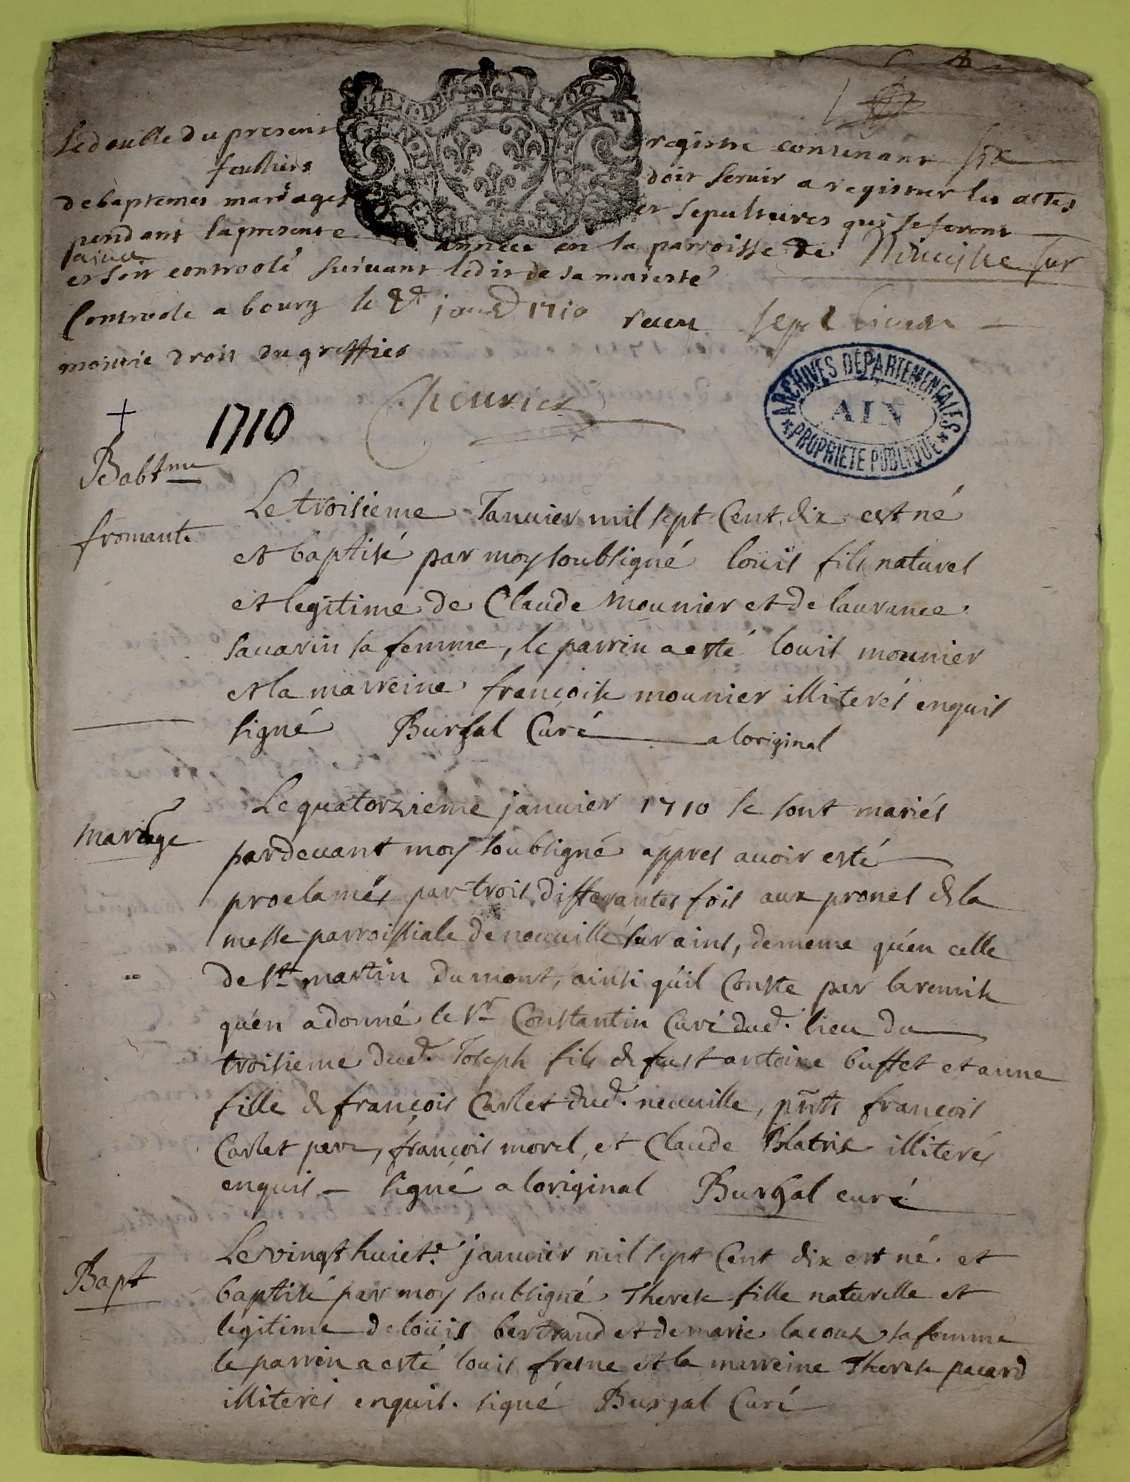 Le double du present registre contenant six
feulliers
de baptemes mariages et sepulteures qui se feront doit servir a registrer les actes
pendant la presente année en la parroisse de Neuville sur
et soit controolé suivant ledit de sa maiesté
Controole a bourg le janv 1710 receu sept livres
moitié droit du greffies
Cheurier
1710
ARCHIVES DÉPARTEMENTALES
AIN
PROPRIÉTÉ PUBLIQUE
Babtme
fromante
Le troisieme Januier mil sept Cent dix est né
et baptisé par moy soubsigné loüis fils naturel
et legitime de Claude mounier et de laurance
sauarin sa femme, le parrin a esté louis mounier
et la marreine françoise mounier illiterés enquis
signé Burgal Curé a loriginal
mariage
Le quatorzieme januier 1710 se sont mariés
pardeuant moy soubsigné appres auoir esté
proclamés par trois differantes fois aux prones de la
messe parroissiale de neuuille sur ains, de meme qu'en celle
de st martin du mont, ainsi qu'il Conste par la remise
qu'en a donné le sr Constantin Curé dud. lieu du
troisieme dud. Joseph fils de fust antoine buffet et anne
fille de françois Carlet dud. neuuille, pnts françois
Carlet pere, françois morel, et Claude Blatrix illiterés
enquis - signé a loriginal Burgal curé
Bapt
Le vingt huict januier mil sept Cent dix est né et
baptisé par moy soubsigné Therese fille naturelle et
legitime de loüis bertrand et de marie lacoux sa femme
le parrin a esté louis fresne et la marreine Therese pecard
illiterés enquis. signé Burgal Curé